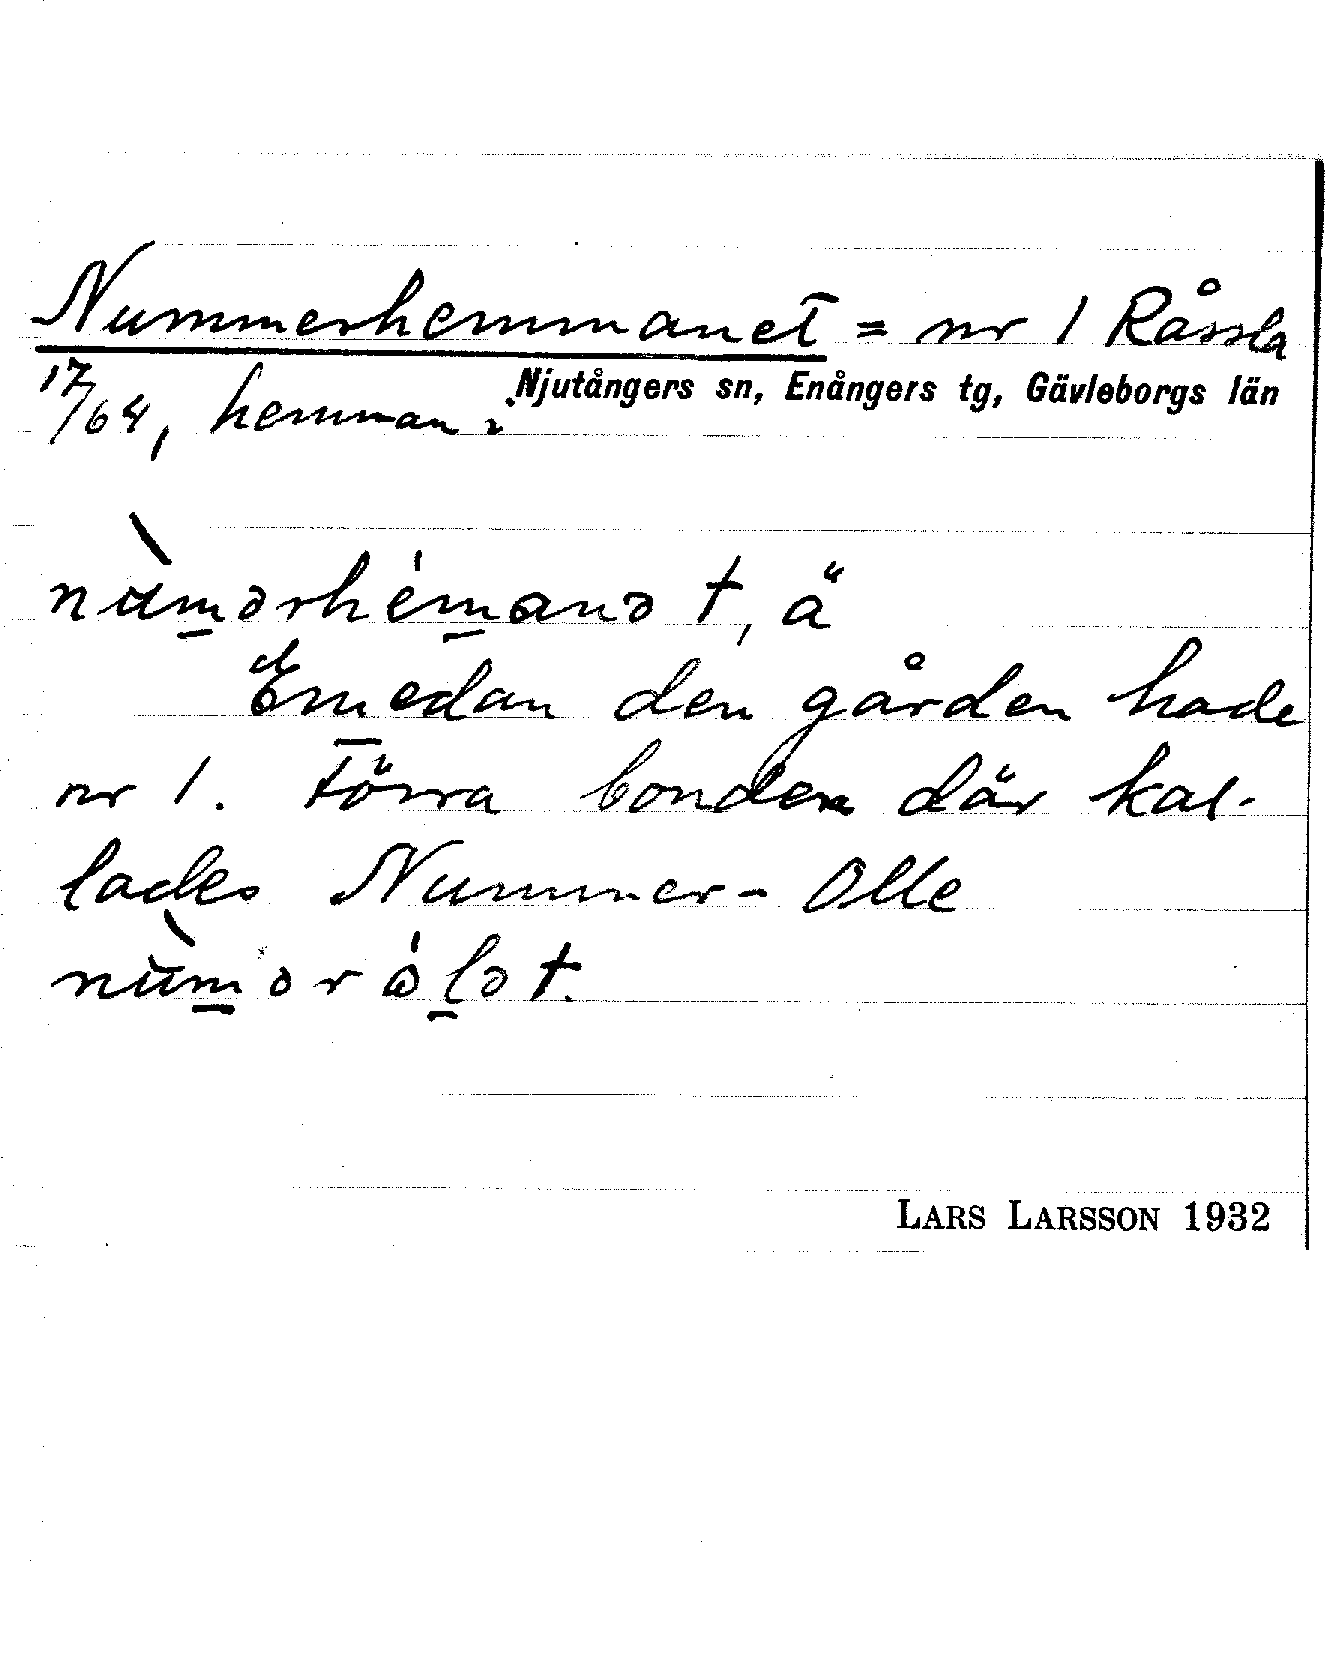 Nummerhemmanet = nr 1 Råssla
17/64, hemman i Njutångers sn, Enångers tg, Gävleborgs län
nùmərhémanə t, ä
Emedan den gården hade
nr 1. Förra bonden där kal-
lades Nummer-Olle
nùmərólə t.
LARS LARSSON 1932